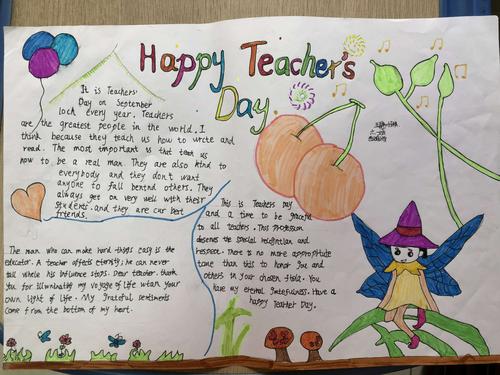 Happy Teacher's
Day
It is Teachers'
Day on September
loth every year. Teachers
are the greatest people in the world. I
think because they teach us how to write and
read. The most important is that teach us
how to be a real man. They are also kind to
everybody and they don't want
anyone to fall behind others. They
always get on very well with their
students. and they are our best
friends.
The man who can make hard things easy is the
educator. A teacher affects eternity; he can never
tell where his influence stops. Dear teacher, thank
you for illuminating my voyage of life with your
own light of life. My grateful sentiments
come from the bottom of my heart.
This is Teachers Day
and a time to be graceful
to all teachers. This profession
deserves the special recognition and
respect. There is no more appropriate
time than this to honor you and
others in your chosen field. You
have my eternal gratefulness. Have a
happy Teacher Day.